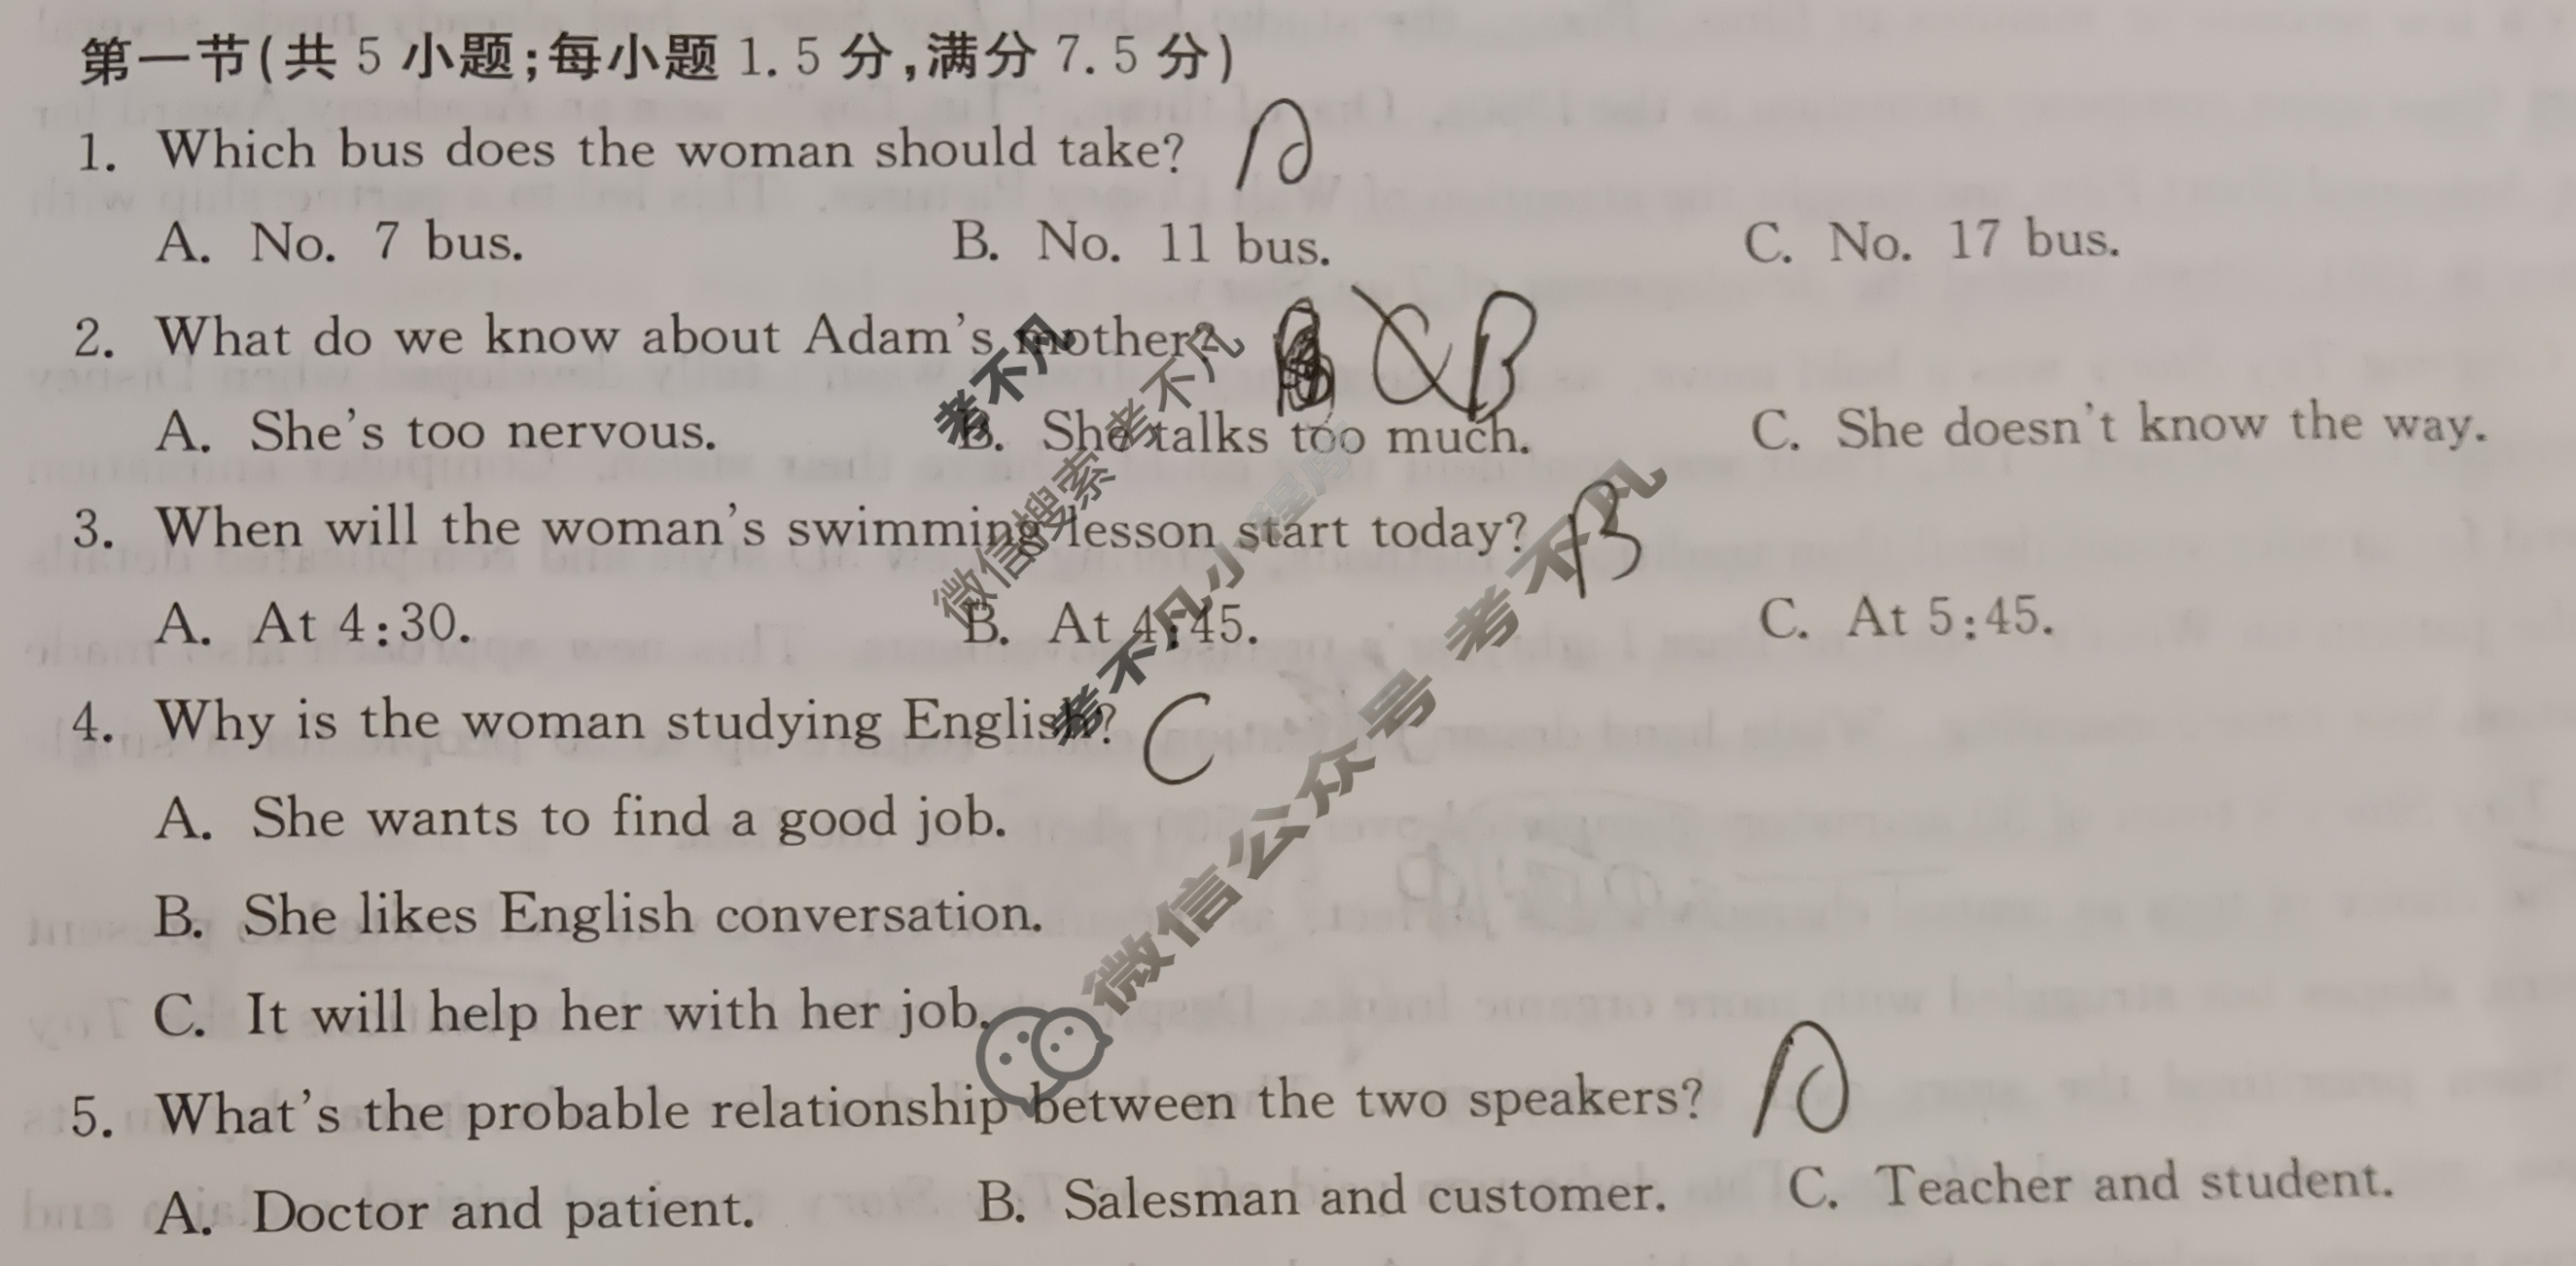 第一节(共 5 小题;每小题 1.5 分,满分 7.5 分)
1. Which bus does the woman should take? A
A. No. 7 bus. B. No. 11 bus. C. No. 17 bus.
2. What do we know about Adam's mother? B
A. She's too nervous. B. She talks too much. C. She doesn't know the way.
3. When will the woman's swimming lesson start today? B
A. At 4:30. B. At 4:45. C. At 5:45.
4. Why is the woman studying English? C
A. She wants to find a good job.
B. She likes English conversation.
C. It will help her with her job.
5. What's the probable relationship between the two speakers? A
A. Doctor and patient. B. Salesman and customer. C. Teacher and student.
考不凡
微信搜索 考不凡
考不凡小程序
微信公众号 考不凡